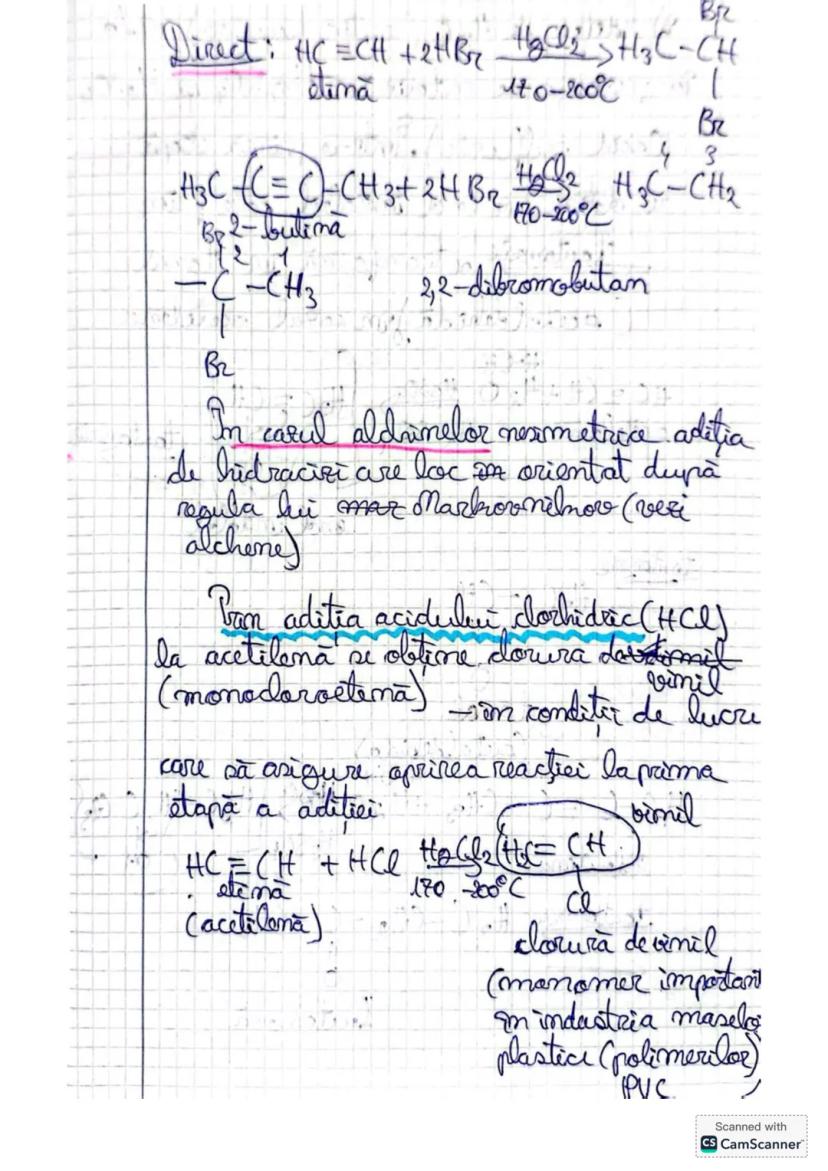 Br
Direct: HC≡CH + 2HBr HgCl2 → H3C-CH
etină 170-200°C |
Br
4 3
H3C-C≡C-CH3 + 2HBr HgCl2 H3C-CH2
2-butină 170-200°C
Br
2 1
-C-CH3 2,2-dibromobutan
|
Br
În cazul alchinelor nesimetrice adiția
de hidracizi are loc orientat după
regula lui Markovnikov (vezi
alchene)
Prin aditia acidului clorhidric (HCl)
la acetilenă se obține clorura de vinil
(monocloroetenă) → în condiții de lucru
care să asigure oprirea reacției la prima
etapă a adiției
vinil
HC≡CH + HCl HgCl2 H2C=CH
etină 170-200°C |
(acetilenă) Cl
clorură de vinil
(monomer important
în industria maselo
plastice (polimerilor)
PVC )
Scanned with
CS CamScanner